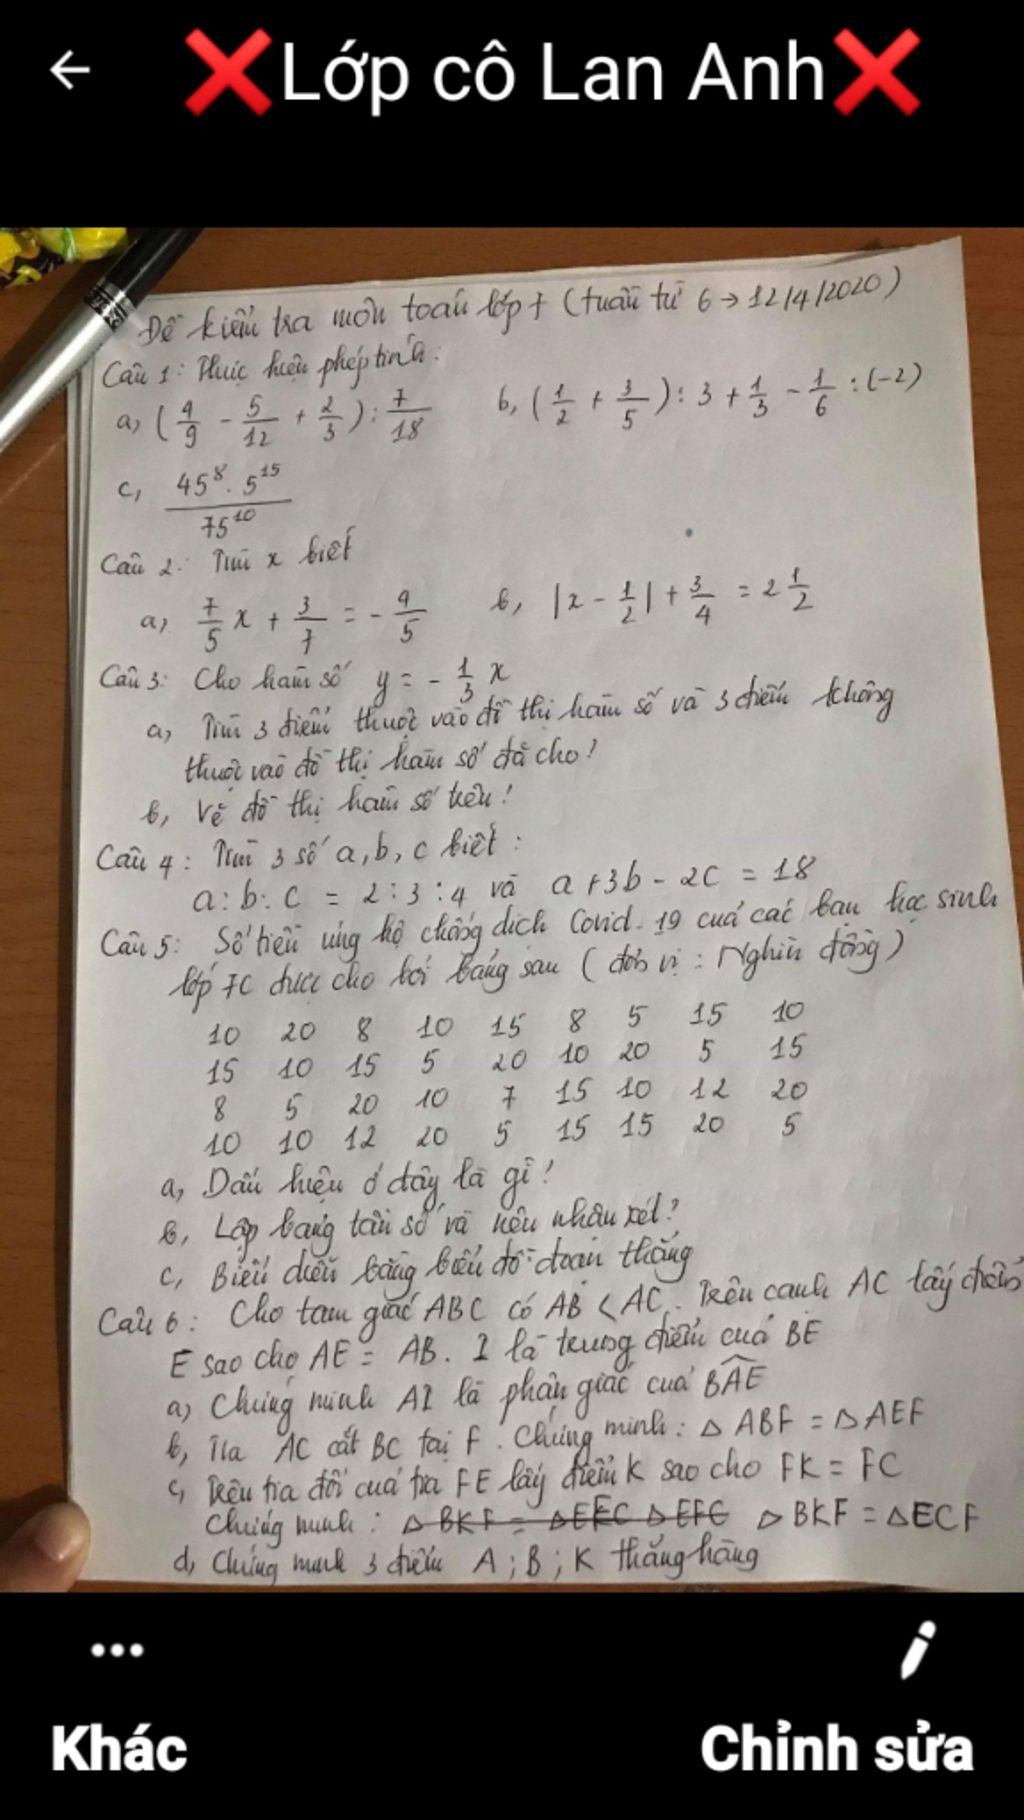 ❌Lớp cô Lan Anh❌
Đề kiểm tra môn toán lớp 7 (tuần từ 6 → 12/4/2020)
Câu 1: Thực hiện phép tính:
a, (4/9 - 5/12 + 2/3) : 7/18 b, (1/2 + 3/5) : 3 + 1/3 - 1/6 : (-2)
c, 45^8 . 5^15 / 75^10
Câu 2: Tìm x biết
a, 7/5 x + 3/7 = - 4/5 b, |x - 1/2| + 3/4 = 2 1/2
Câu 3: Cho hàm số y = - 1/3 x
a, Tìm 3 điểm thuộc vào đồ thị hàm số và 3 điểm không
thuộc vào đồ thị hàm số đã cho!
b, Vẽ đồ thị hàm số trên!
Câu 4: Tìm 3 số a, b, c biết:
a : b : c = 2 : 3 : 4 và a + 3b - 2c = 18
Câu 5: Số tiền ủng hộ chống dịch Covid-19 của các bạn học sinh
lớp 7C được cho bởi bảng sau (đơn vị: Nghìn đồng)
10 20 8 10 15 8 5 15 10
15 10 15 5 20 10 20 5 15
8 5 20 10 7 15 10 12 20
10 10 12 20 5 15 15 20 5
a, Dấu hiệu ở đây là gì!
b, Lập bảng tần số và nêu nhận xét?
c, Biểu diễn bằng biểu đồ đoạn thẳng
Câu 6: Cho tam giác ABC có AB < AC. Trên cạnh AC lấy điểm
E sao cho AE = AB. I là trung điểm của BE
a) Chứng minh AI là phân giác của BAE
b, Tia AC cắt BC tại F. Chứng minh: △ ABF = △AEF
c, Trên tia đối của tia FE lấy điểm K sao cho FK = FC
Chứng minh: △ BKF = △EFC △ EFC △ BKF = △ECF
d, Chứng minh 3 điểm A; B; K thẳng hàng
Khác
Chỉnh sửa